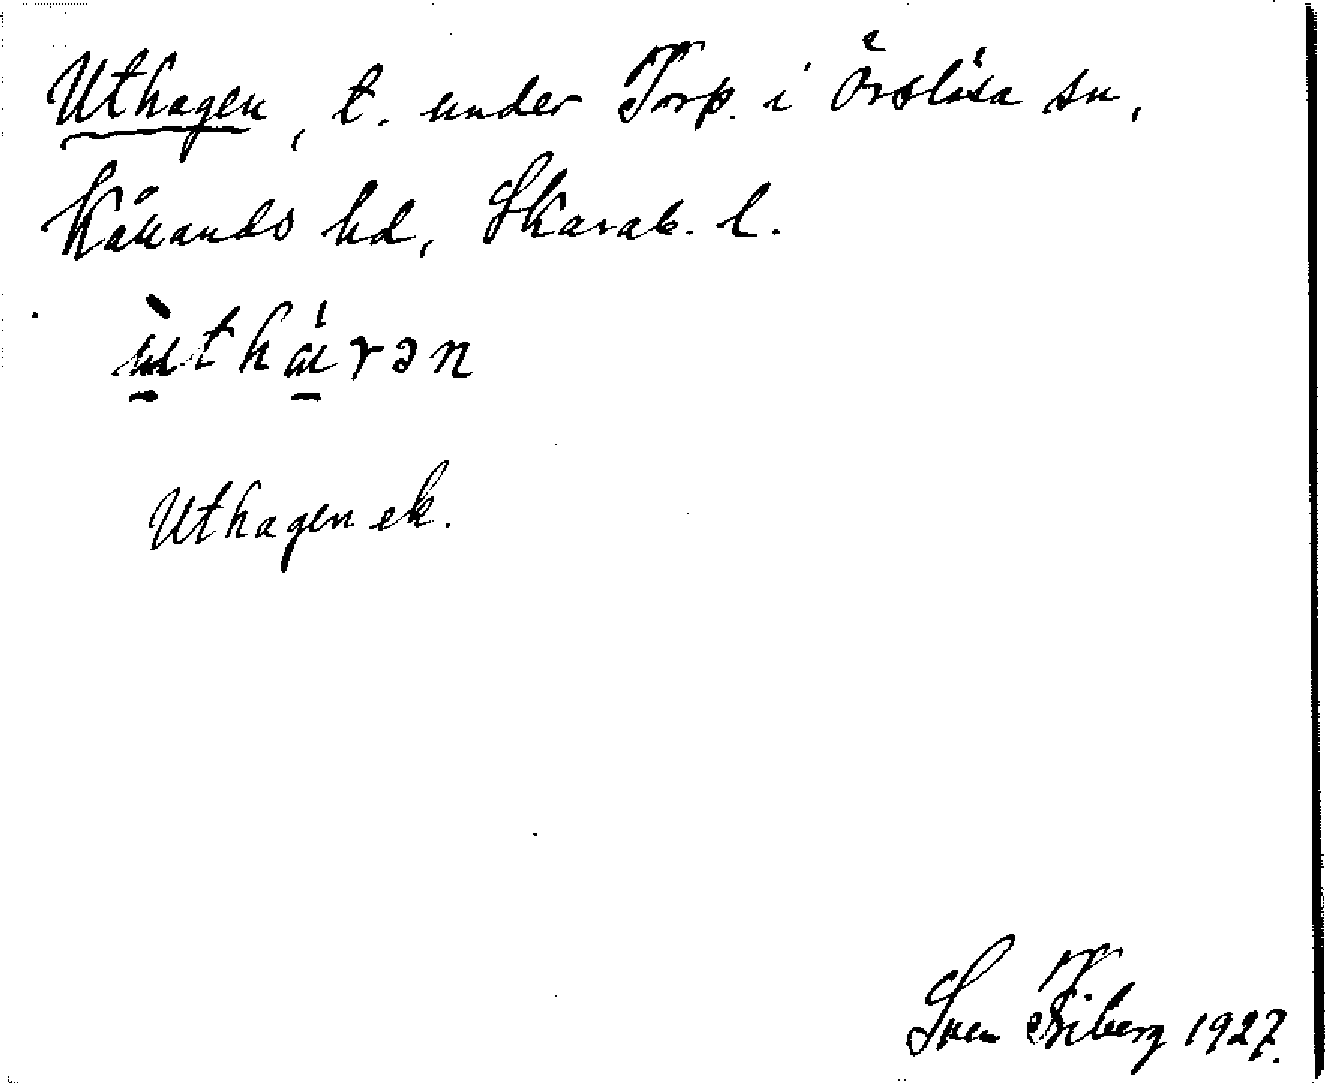 Uthagen, t. under Torp. i Örslösa sn,
Kållands hd, Skarab. l.
ùthávən
Uthagen ek.
Sven Friberg 1927.